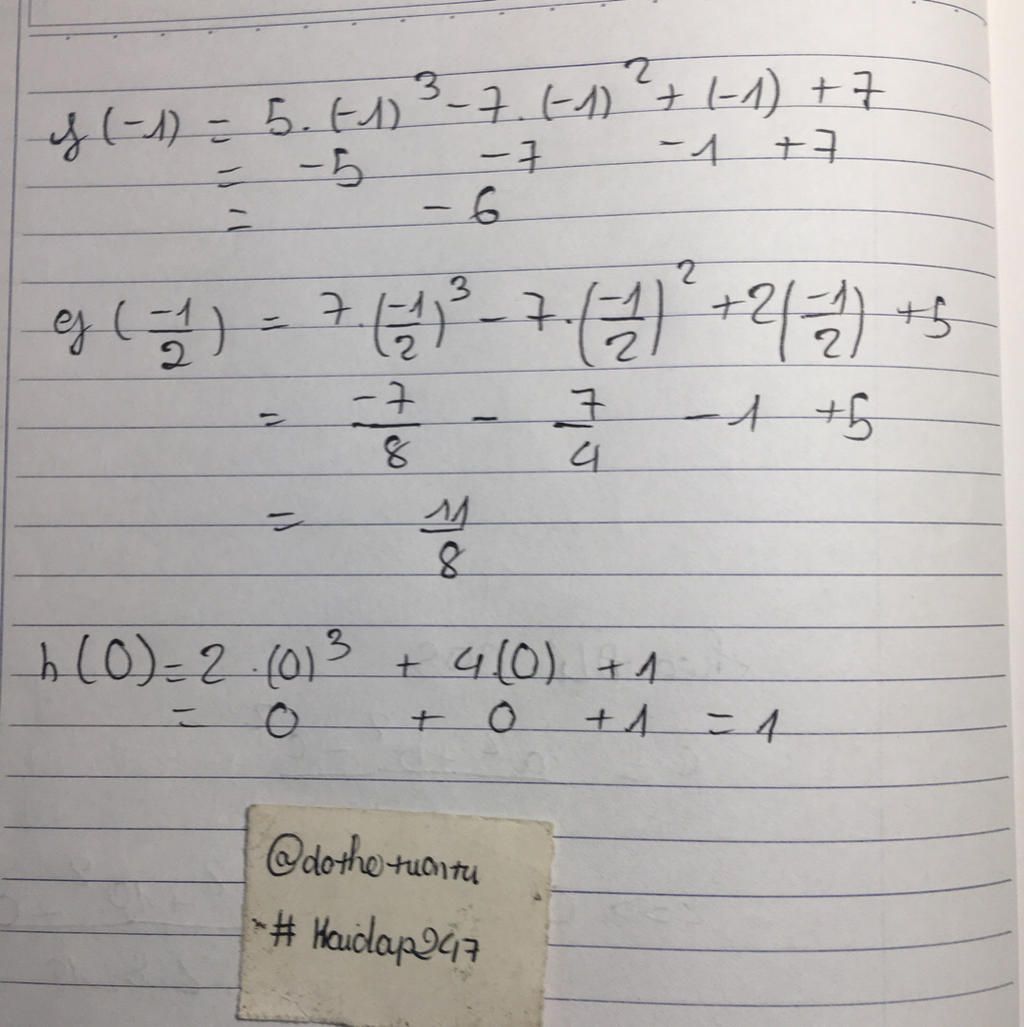 f(-1) = 5.(-1)³ - 7.(-1)² + (-1) + 7
= -5 -7 -1 +7
= -6
g(-1/2) = 7.(-1/2)³ - 7.(-1/2)² + 2(-1/2) + 5
= -7/8 - 7/4 - 1 + 5
= 11/8
h(0) = 2.(0)³ + 4.(0) + 1
= 0 + 0 + 1 = 1
@dothetuantu
# Hoidap247